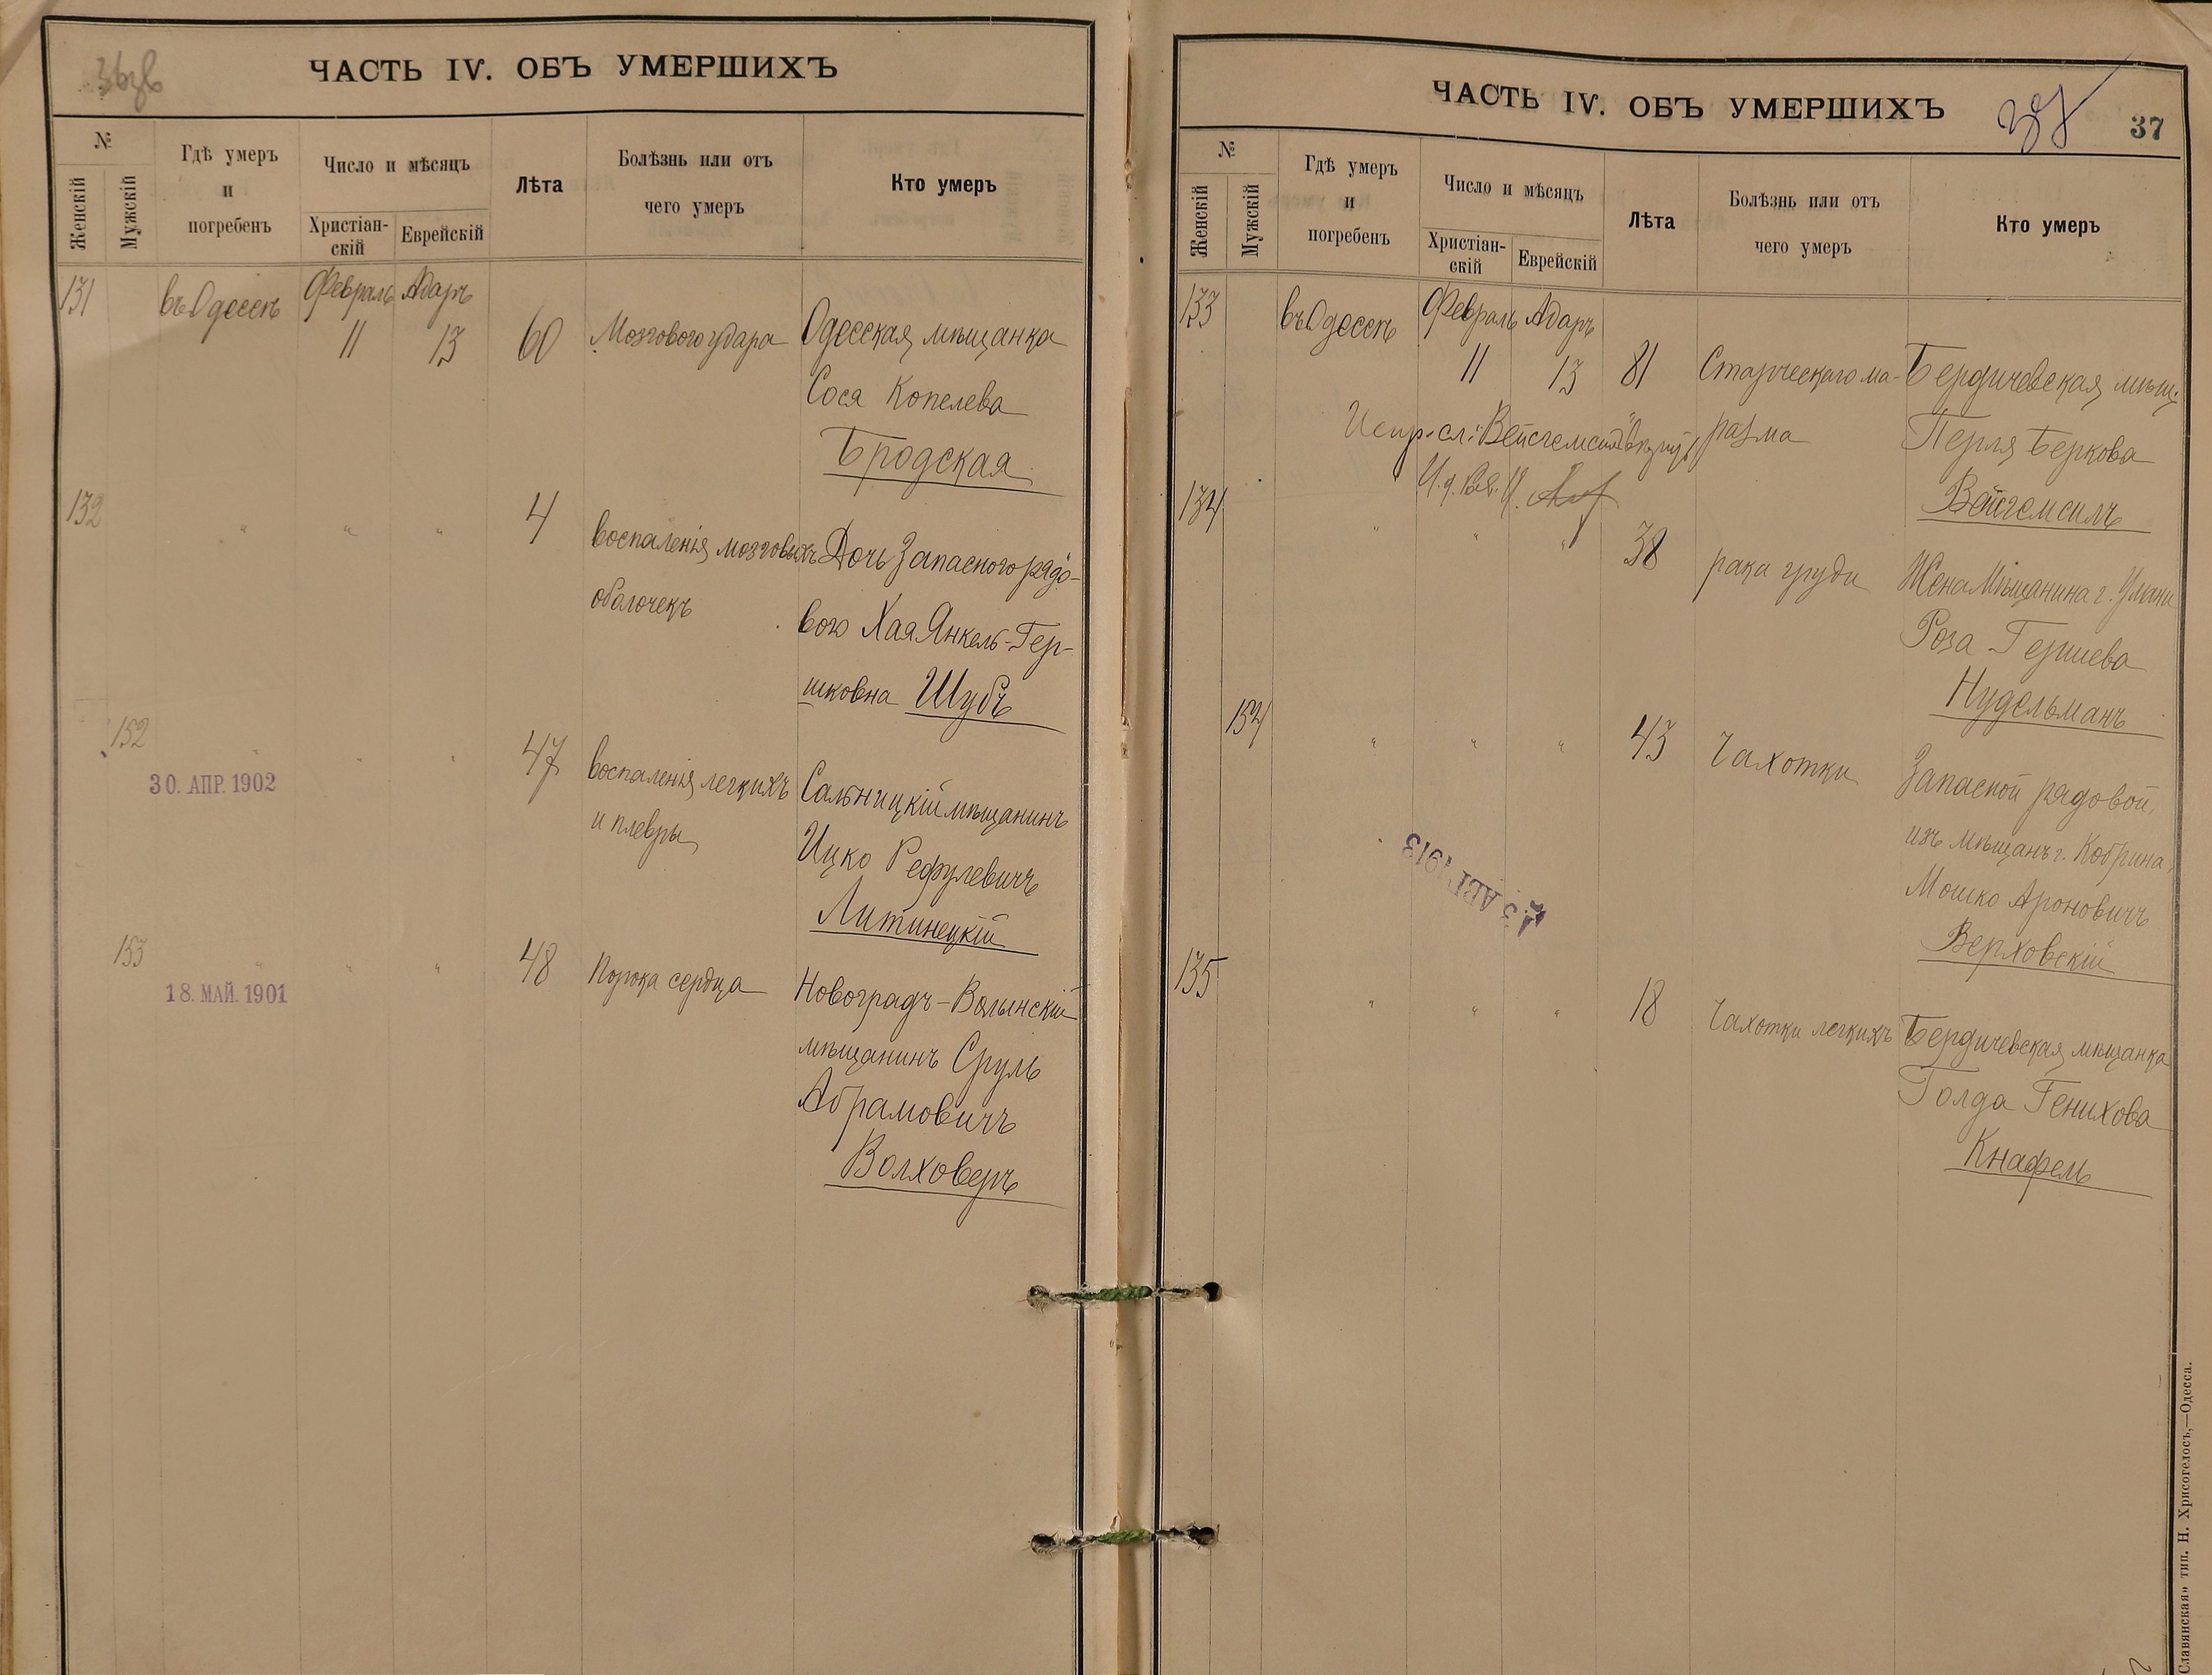 ЧАСТЬ IV. ОБЪ УМЕРШИХЪ
№
Женскій
Мужскій
Гдѣ умеръ
и
погребенъ
Число и мѣсяцъ
Христіан-
скій
Еврейскій
Лѣта
Болѣзнь или отъ
чего умеръ
Кто умеръ
131 въ Одессѣ Февраль Адаръ
11 13 60 Мозгового удара Одесская мѣщанка
Сося Копелева
Бродская
132 " " " 4 воспаленія мозговыхъ Дочь Запасного рядо-
оболочекъ
вого Хая Янкель-Гер-
шковна Шубъ
152 " " " 47 воспаленія легкихъ Сальницкій мѣщанинъ
30. АПР. 1902
и плевры
Ицко Рефулевичъ
Литинецкій
153 " " " 48 Порока сердца Новоградъ-Волынскій
18. МАЙ. 1901
мѣщанинъ Сруль
Абрамовичъ
Волховеръ
ЧАСТЬ IV. ОБЪ УМЕРШИХЪ
37
№
Женскій
Мужскій
Гдѣ умеръ
и
погребенъ
Число и мѣсяцъ
Христіан-
скій
Еврейскій
Лѣта
Болѣзнь или отъ
чего умеръ
Кто умеръ
133 въ Одессѣ Февраль Адаръ
11 13 81 Старческаго ма- Бердичевская мѣщ.
Испр. сл: разма Перля Беркова
Вейсгемсилъ
134 " " " 38 рака груди Жена Мѣщанина г. Умани
Роза Гершева
Нудельманъ
154 " " " 43 Чахотки Запасной рядовой,
изъ мѣщанъ г. Кобрина,
Мошко Ароновичъ
Верховскій
АВГ 1913
135 " " " 18 Чахотки легкихъ Бердичевская мѣщанка
Голда Генихова
Кнафель
Славянская» тип. Н. Хрисогелосъ,—Одесса.